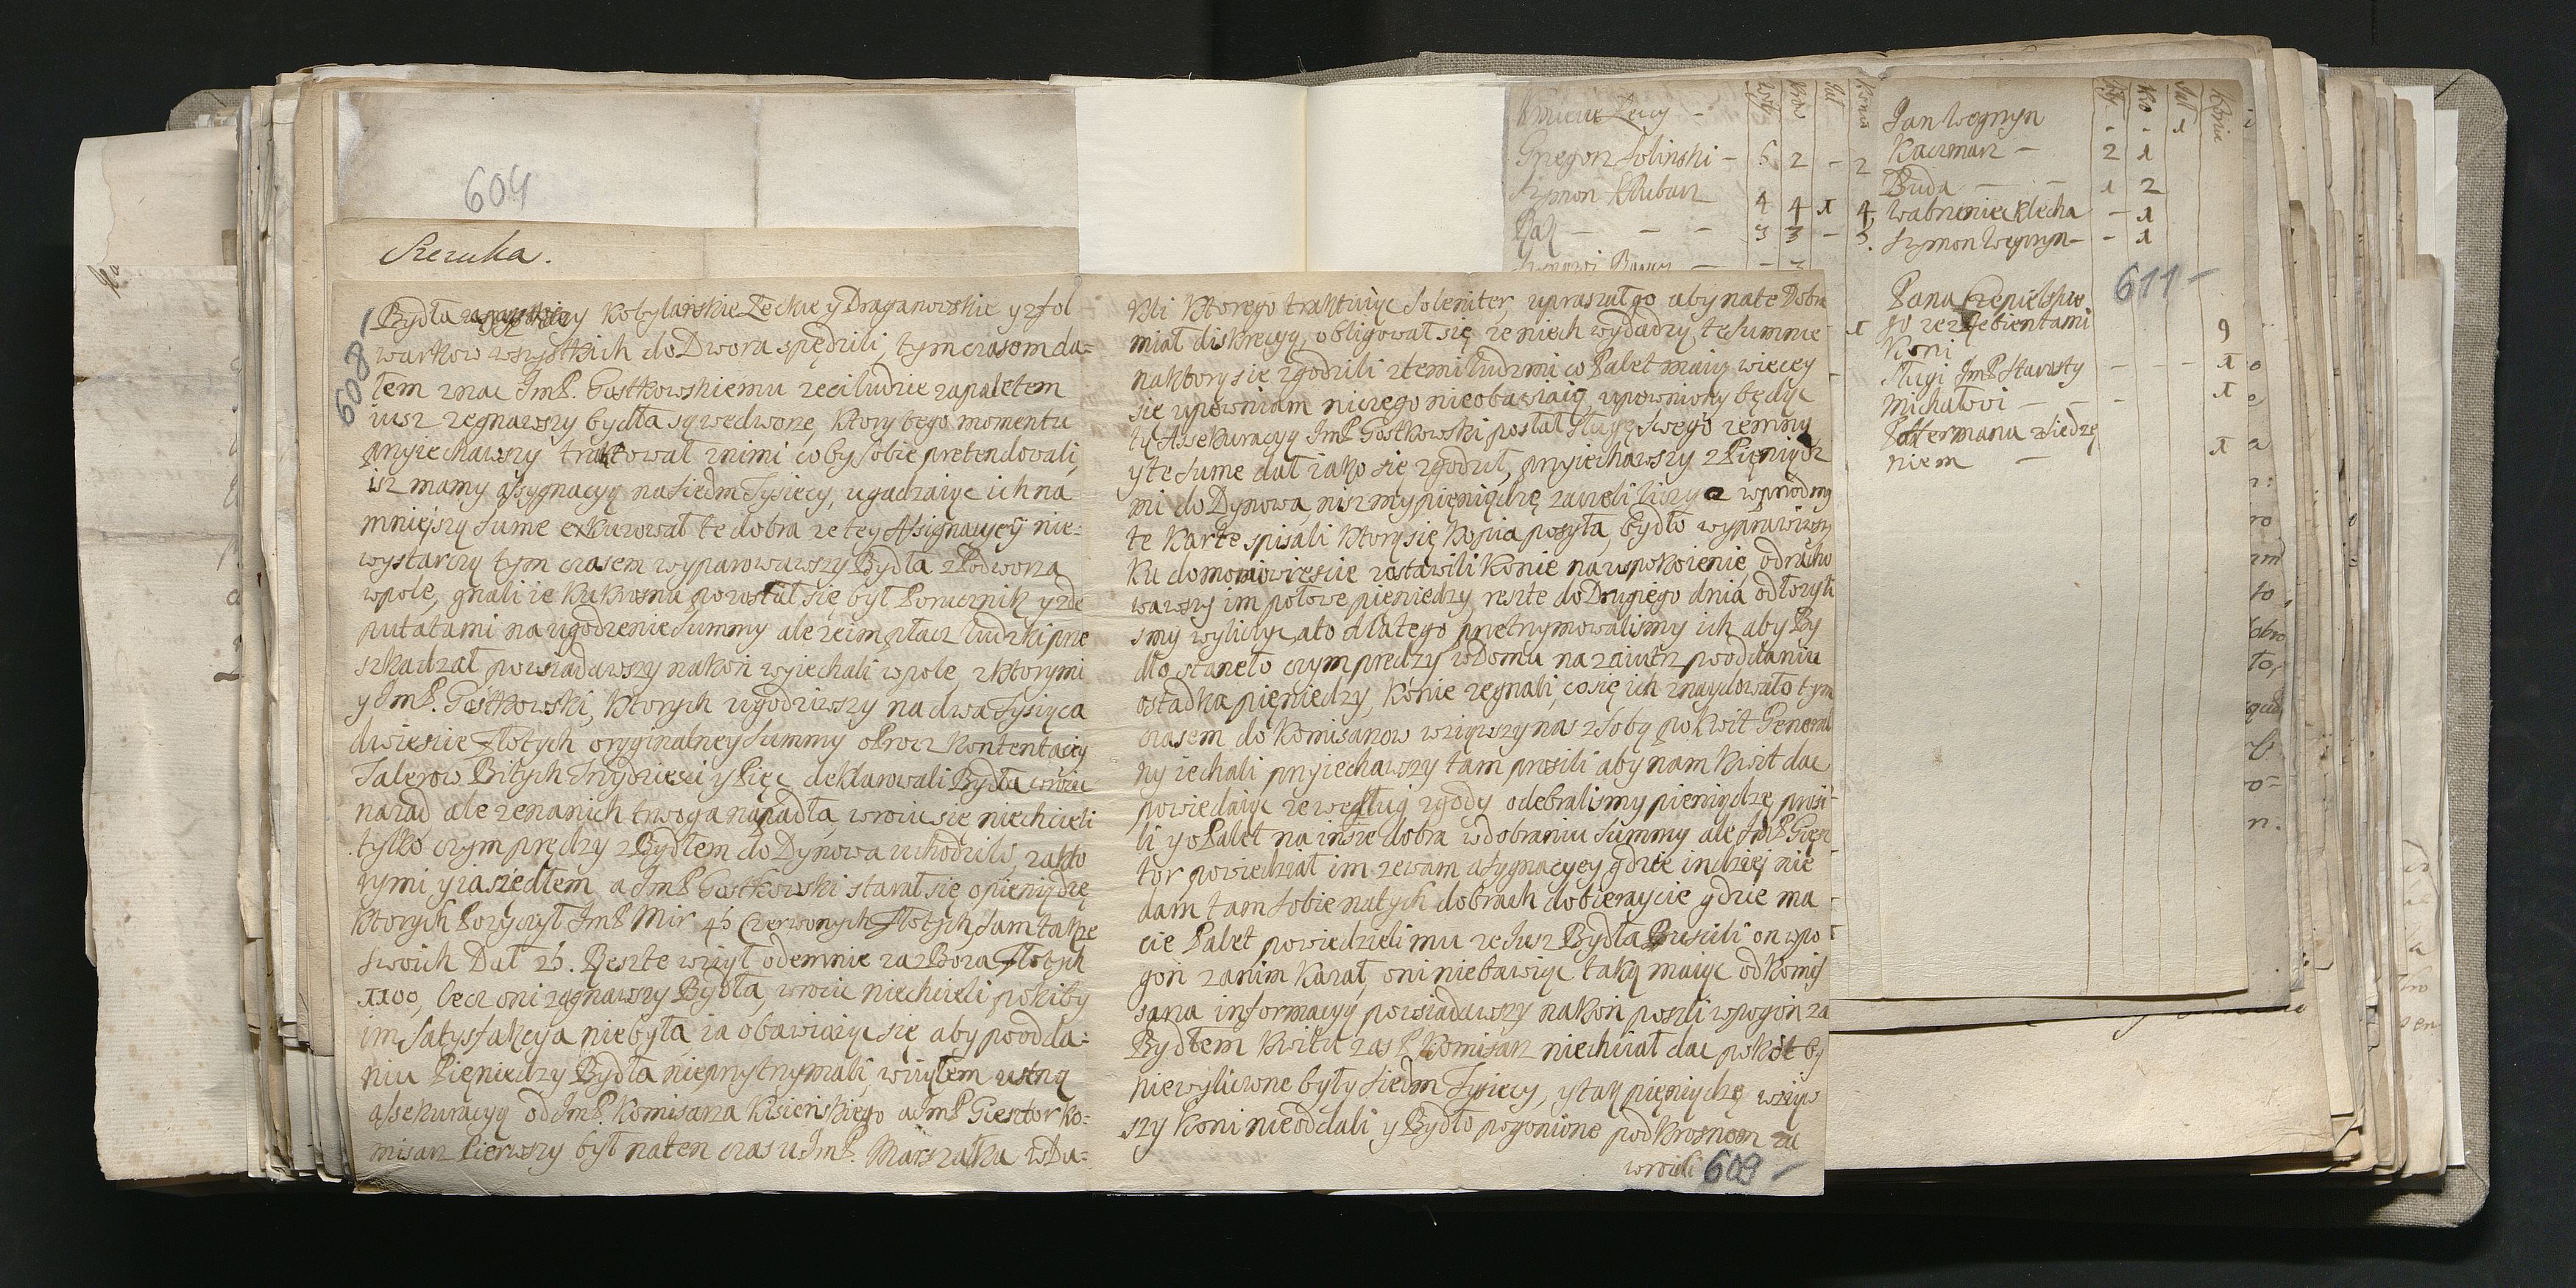 604
Szczuka.
608
Bydła Kobylańskie Łeckie y Draganowskie y z fol
warkow wszystkich do Dwora spędzili, tym czasom da-
łem znac ImP. Gostkowskiemu ze ci ludzie za paletem
iusz zegnawszy bydła są we dworze, ktory tego momentu
przyiechawszy traktował z nimi co by sobie pretendowali,
isz mamy assygnacyą na siedm Tysięcy, ugadzaiąc ich na
mnieyszą sume exkuzował te dobra ze tey Assignacyey nie-
wystarczą tym czasem wyparowawszy Bydła z Podworza
w pole, gnali ie ku Krosnu pozostał się był Porucznik y z de
putatami na ugodzenie Summy ale ze im płacz ludzki prze
szkadzał powsiadawszy na koń wyiechali w pole, z ktorymi
y ImP. Gostkowski, ktorych ugodziwszy na dwa Tysiąca
dwiescie Złotych oryginalney Summy oprocz kontentacyey
Talerow Bitych Trzydziesci y Pięc deklarowali Bydła wrocic
nazad ale ze na nich trwoga napadła, wrocic się niechcieli
tylko czym prędzy z Bydłem do Dynowa uchodzili, za kto
rymi y ia szedłem a ImP Gostkowski starał się o pieniądze
ktorych Pozyczył ImP Mir 45 Czerwonych Złotych, sam takze
swoich Dał 25. Reszte wziął odemnie za zBoza Złotych
1100, lecz oni zegnawszy Bydła, wrocic niechcieli pokiby
im satysfakcya niebyła, ia obawiaiąc się aby po odda-
niu Pięniedzy Bydła nieprzytrzymali, wziąłem ustną
assekuracyą od ImP. Komisarza Kisieńskiego a ImP Giesztor ko-
misarz Pierwszy był na ten czas u ImP. Marszałka w Du-
kli ktorego traktuiąc soleniter, upraszał go aby na te Dobra
miał diskrecyą, obligował się ze niech wydadzą te Summe
na ktorą się zgodzili z temi ludzmi co Palet maią więcey
się upewniam niczego nie obawiaią, upewniony będąc
tą Assekuracyą ImP Gostkowski posłał Sługę swego zemną
y te sume dał iako się zgodził, przyiechawszy z Pieniędz
mi do Dynowa, nisz my pieniądze zaczeli liczyc wprzod my
te karte spisali ktorey się kopia posyła, bydło wyprawiwszy
ku domowi zostawili konie na uspokoienie, odracho
wawszy im połowe pieniedzy reszte do Drugiego dnia odłozyli
smy wyliczyc, a to dlatego przetrzymowalismy ich aby By
dło staneło czym predzy w Domu na zaiutrz po oddaniu
ostadka pieniedzy, konie zegnali, co się ich znaydowało tym
czasem do Komisarzow wziąwszy nas z sobą po kwit General
ny iechali przyiechawszy tam prosili aby nam kwit dac
powiedaiąc ze według zgody odebralismy pieniądze, prosi-
li y o Palet na insze dobra w dobraniu Summy ale ImP Giesz
tor powiedział im ze wam asygnacyey gdzie indziey nie
dam tam sobie na tych dobrach dobieraycie gdzie ma
cie Palet powiedzieli mu ze iusz Bydła Puscili on w po
gon za nim kazał, oni niebawiąc taką maiąc od komis
sarza informacyą powsiadawszy na koń poszli w pogoń za
Bydłem kwitu zas P Komisarz niechciał dac pokąt by
niewyliczone były siedm Tysięcy, y tak pieniądze wziąw
szy koni nie oddali y Bydło pogonione pod Krosnem za
wrocili
609
Grzegorz Solinski - 5 2 - 2
Szymon Kluban 4 4 1 4
Bąk - - - 3 3 - 3.
Jan Węgrzyn - - 1
Kaczmarz - 2 1
Buda - - 1 2
Wabrzeniec Klecha - 1
Szymon Węgrzyn - - 1
611
Pana Czepielskie
go ze zrebientami
Koni 9
Sługi ImP Starosty - - - 1
Michałowi - - - 1
niem - 1